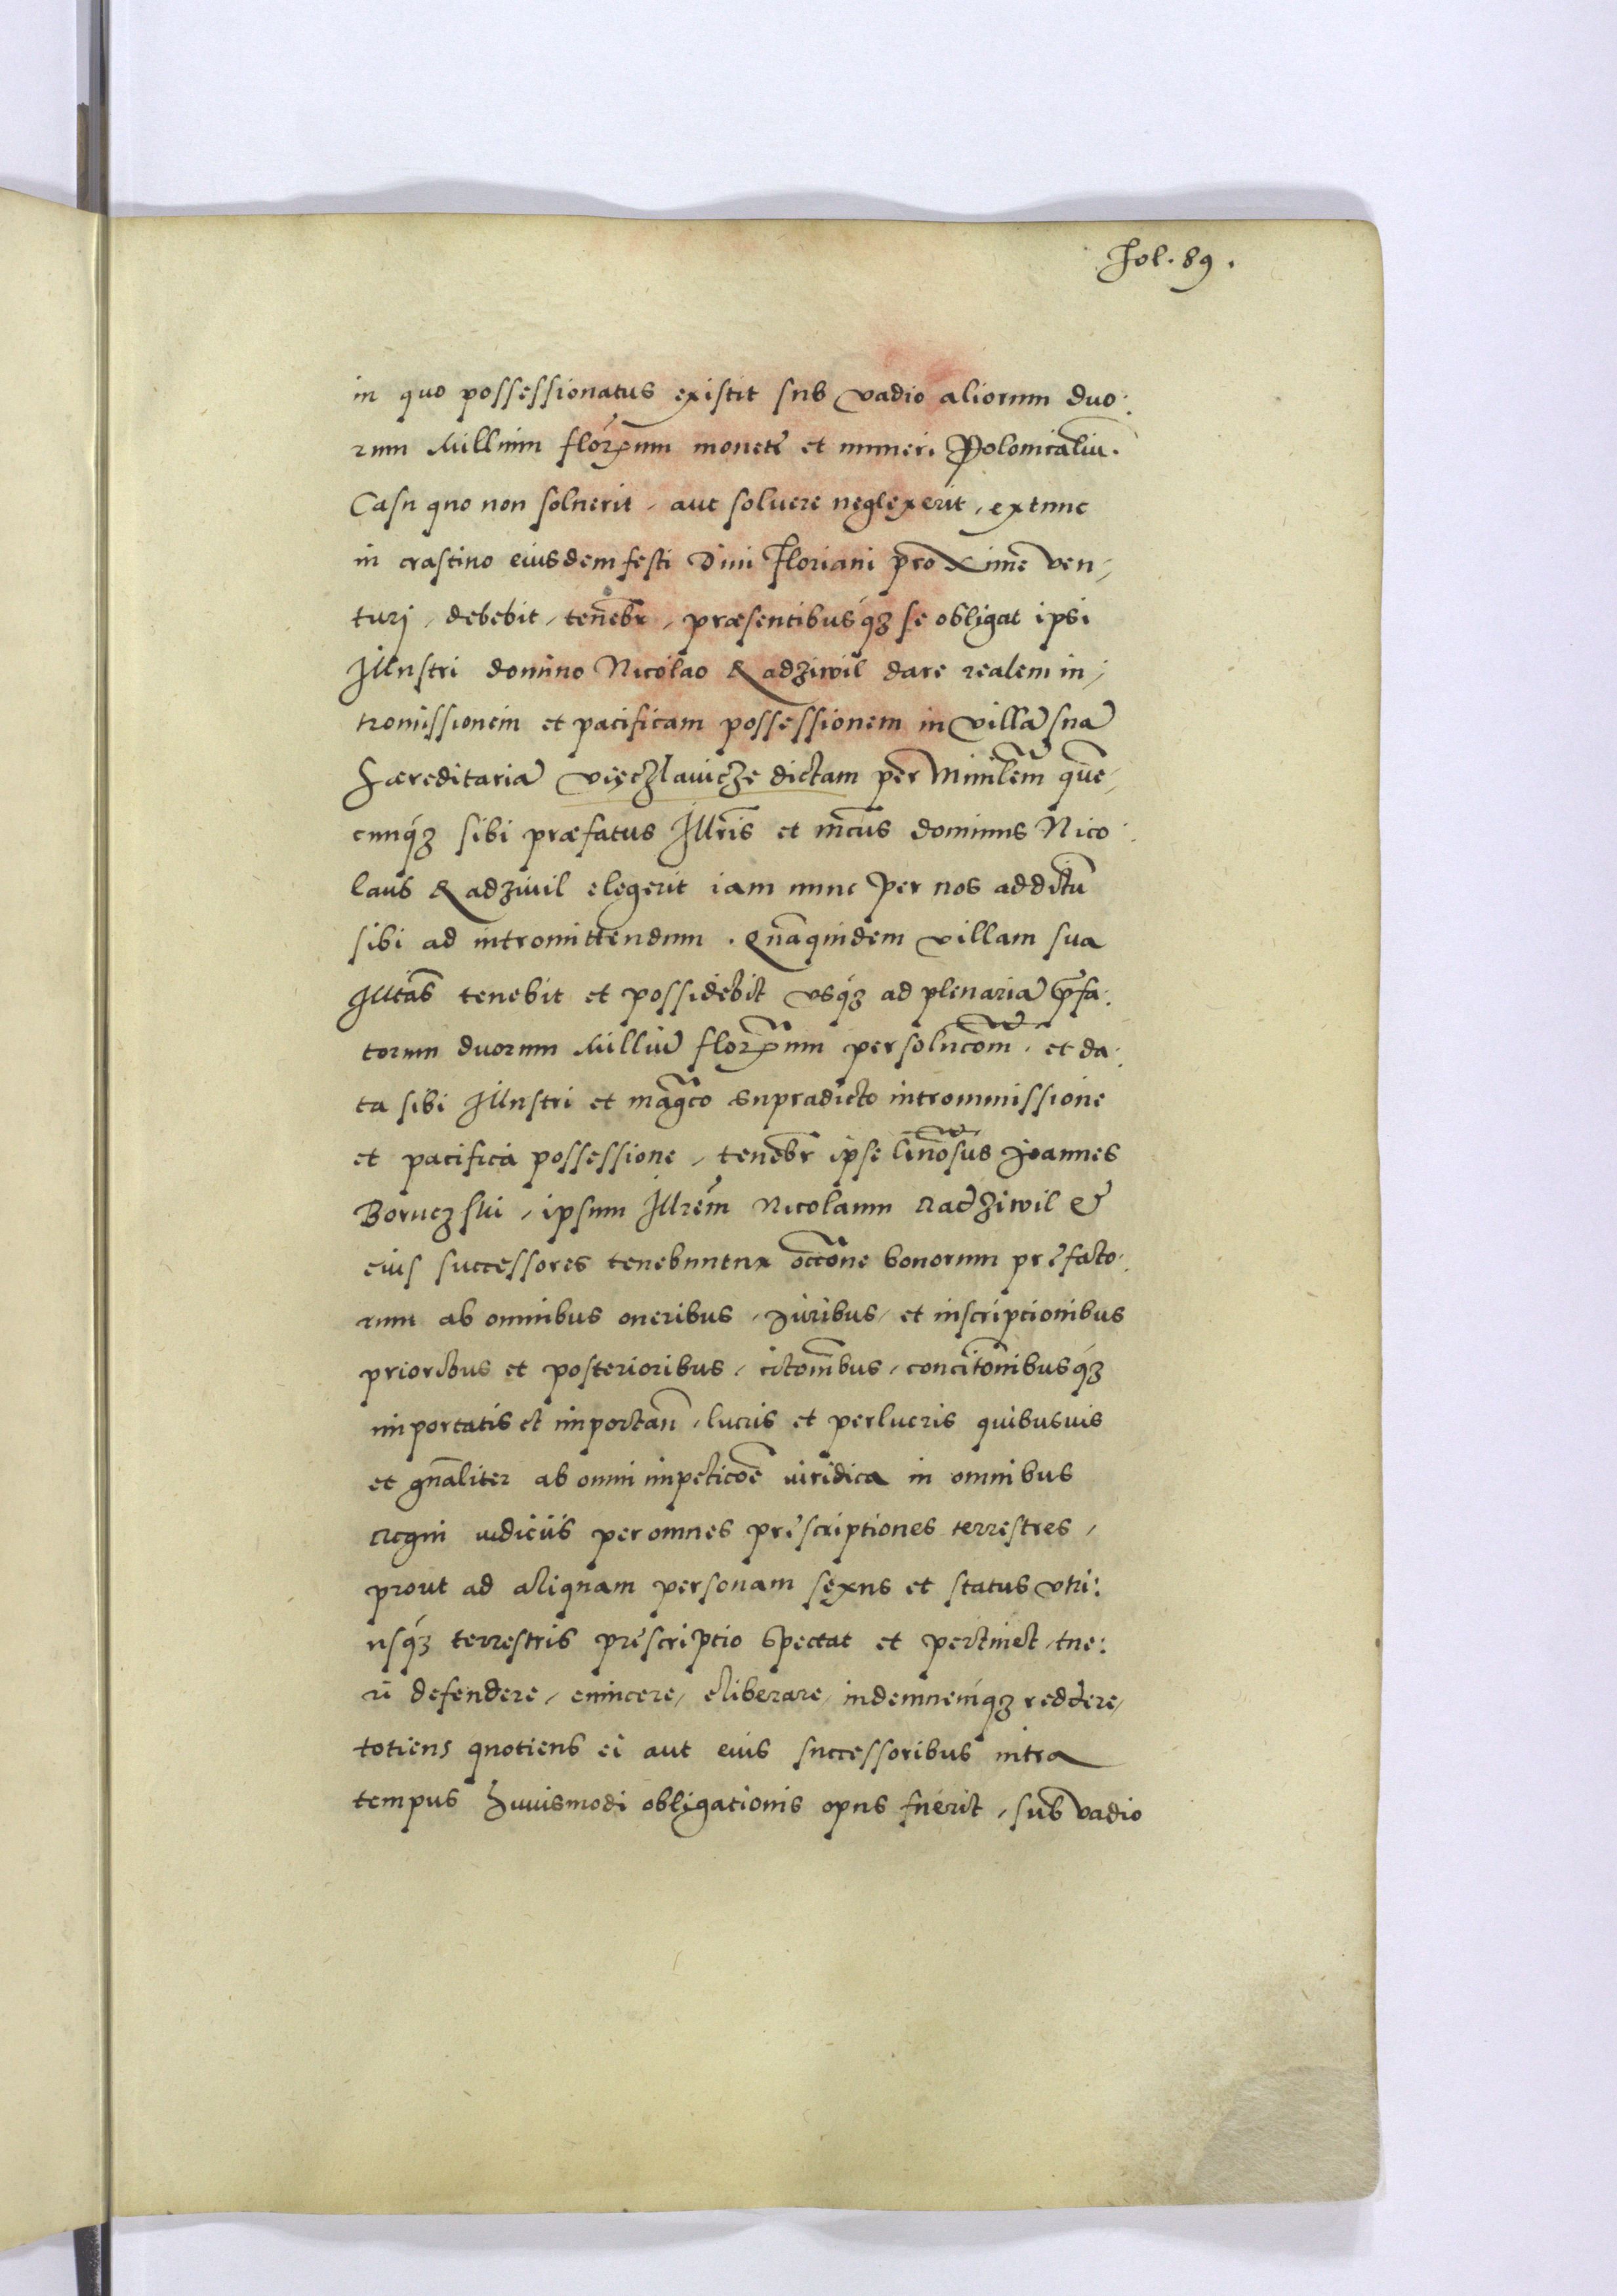 Fol. 89.
in quo possessionatus existit sub vadio aliorum duo:
rum Millium flor͂enum monetę et numeri Polonicaliũ.
Casu quo non soluerit, aut soluere neglexerit, extunc
in crastino eiusdem festi Diui Floriani proxime ven,
turj, debebit, teñebr, præsentibusq́ꝫ se obligat ipsi
Illustri domino Nicolao Radziwil dare realem in,
tromissionem et pacificam possessionem in villã suã
hæreditariã vięczlavicze dictam per Minilẽm quẽ,
cunq́ꝫ sibi præfatus Illris̃ et m̃cus dominus Nico:
laus Radziuil elegerit iam nunc per nos additũ
sibi ad intromittendum. Quãquidem villam sua
Illtãs tenebit et possidebit vsq́ꝫ ad plenariã p̃fa:
torum duorum Milliũ flor͂enum persolucõm, et da:
ta sibi Illustri et mag̃co supradicto intrommissione
et pacifica possessione, tenebr̃ ipse Gñosus Joannes
Boruczski, ipsum Illrẽm Nicolaum Radziwil &
eius successores tenebuntur occõne bonorum pręfacto:
rum ab omnibus oneribus, Juribus, et inscriptionibus
prioribus et posterioribus, citõnibus, concitõnibusq́ꝫ
importatis et importañ, lucris et perlucris quibusuis
et gñaliter ab omni impeticoẽ iuridica in omnibus
Regni iudiciis per omnes pręscriptiones terrestres,
prout ad aliquam personam sexus et status vtri:
usq́ꝫ terrestris pręscriptio spectat et pertinet, tue:
ri defendere, euincere, eliberare, indemnemq́ꝫ reddere,
totiens quotiens ei aut eius successoribus intra
tempus huiusmodi obligationis opus fuerit, sub vadio